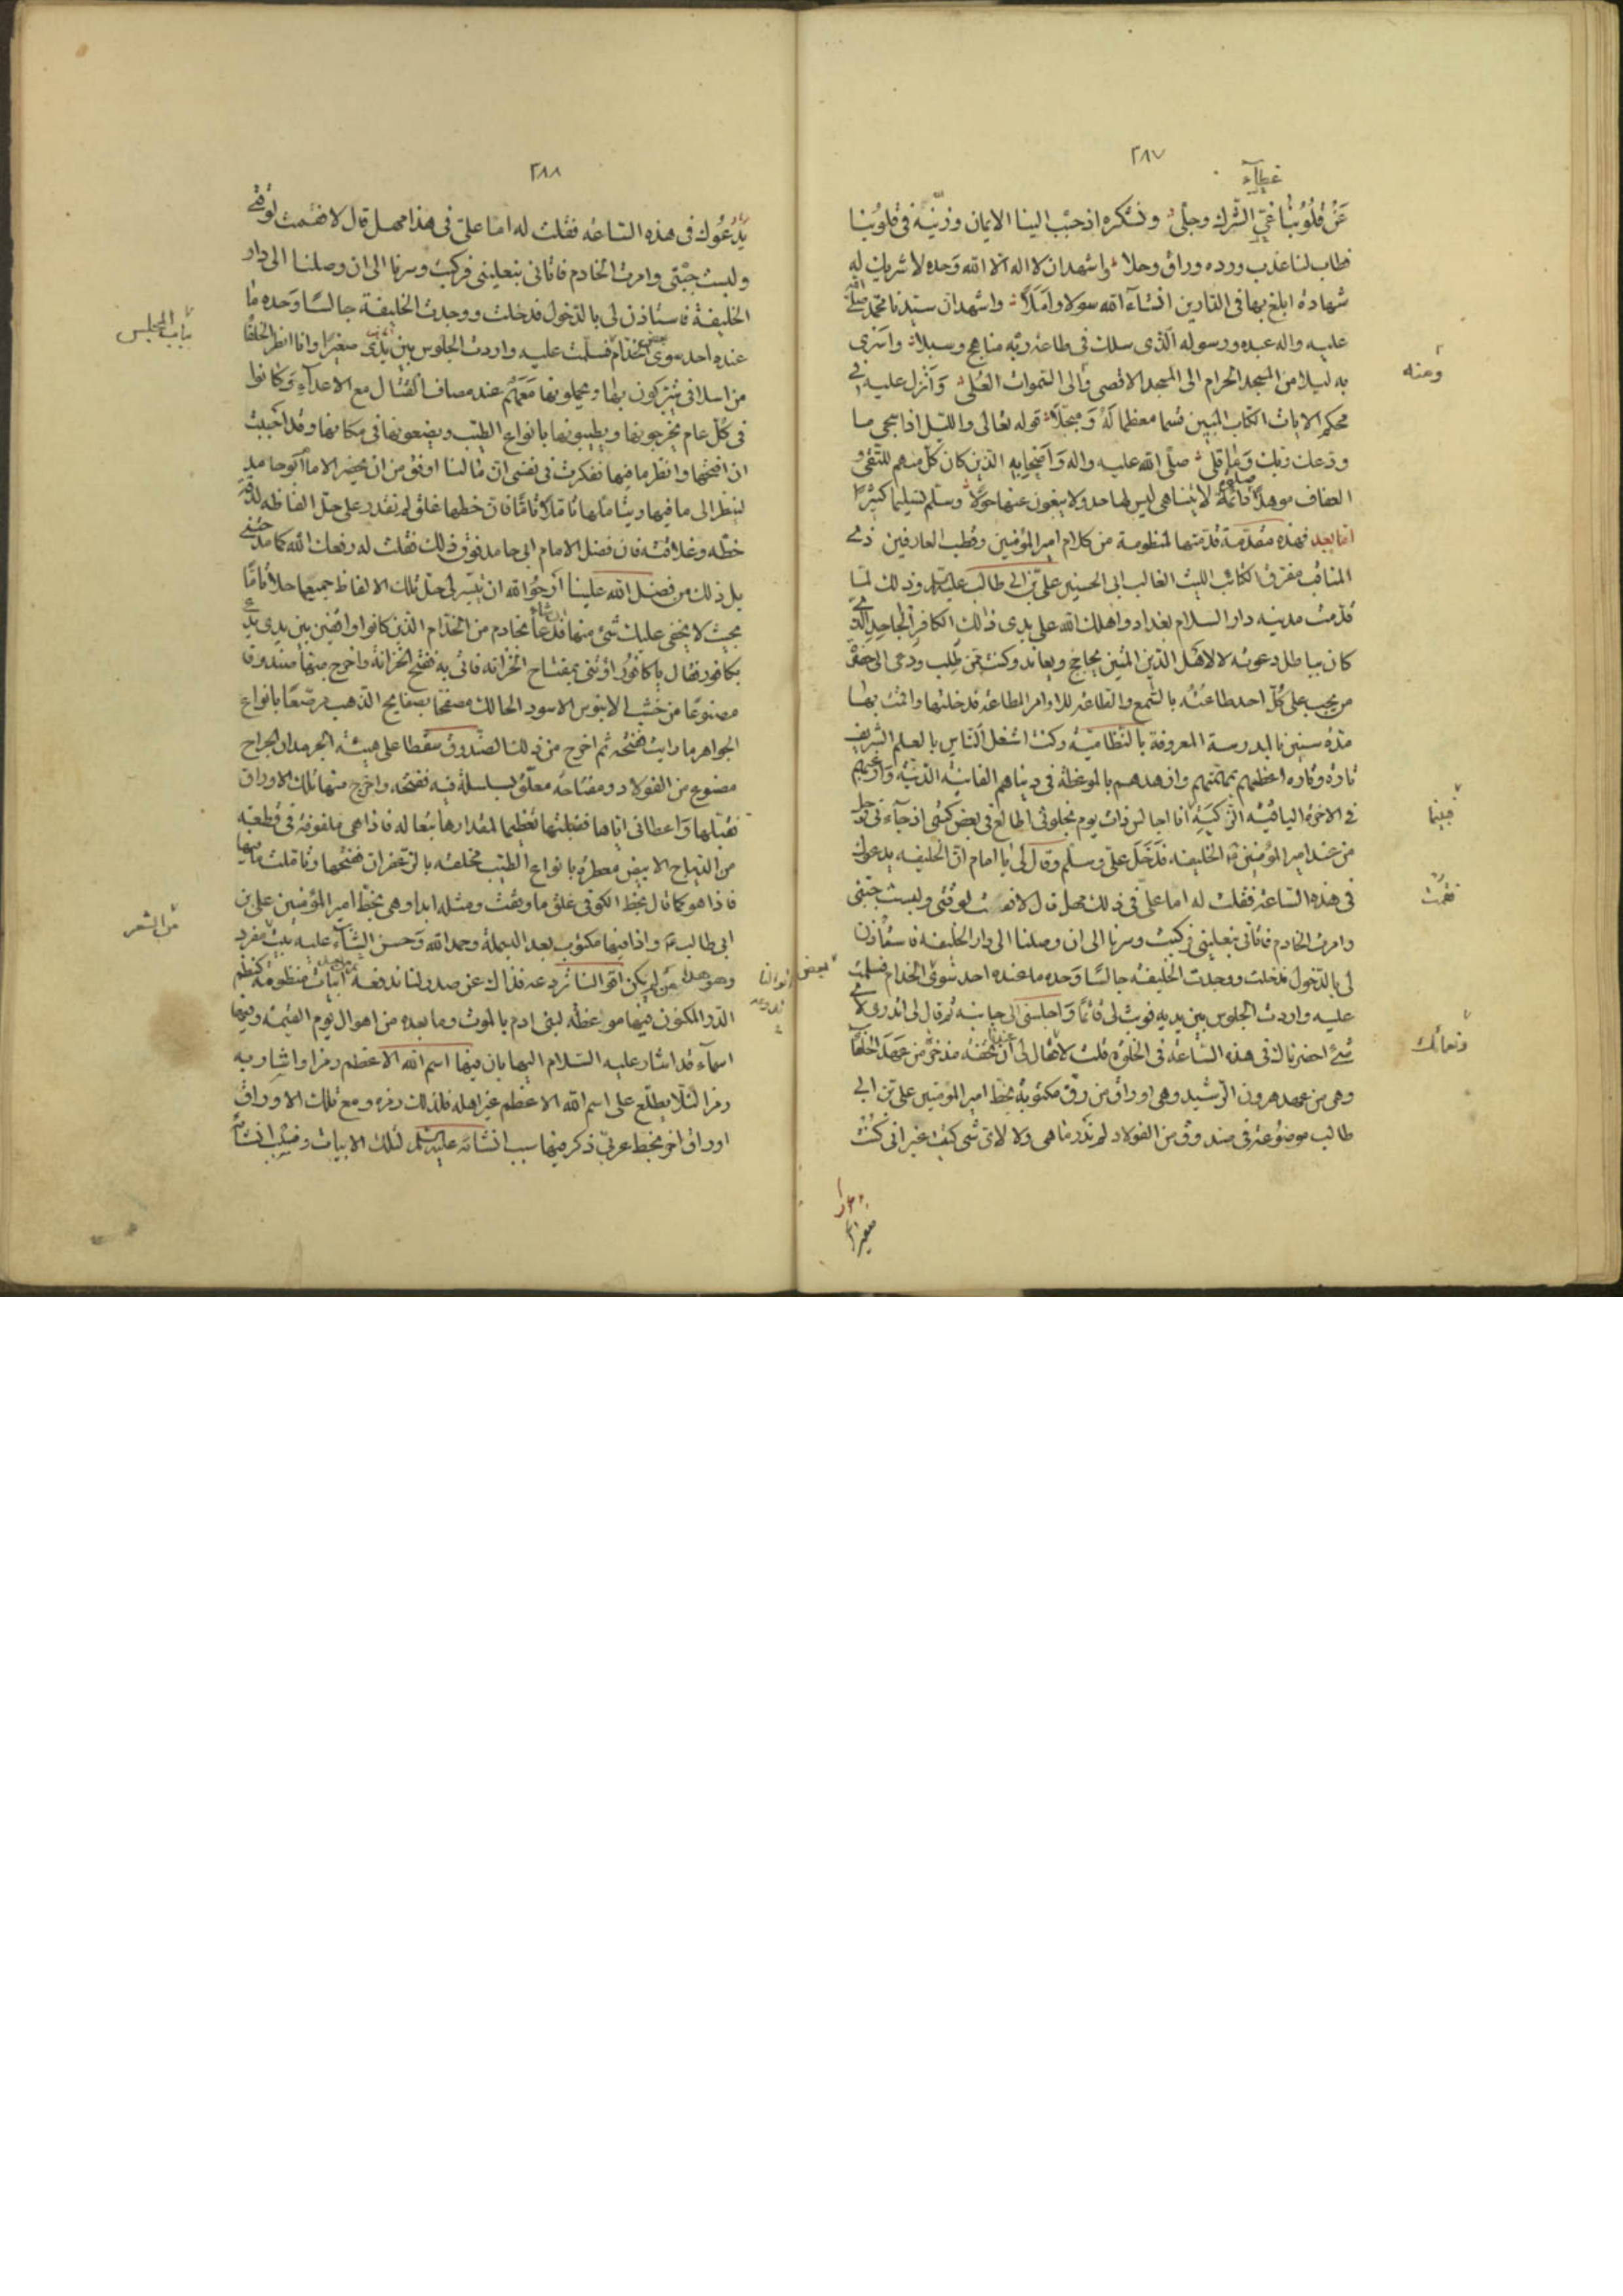 ٢٨٧
غطآء
عَنْ قُلُوبُنا غيّ الشرك وجلى ونشكره اذ حبّب الينا الايمان وزيّنه فى قلوبنا
فطاب لنا عذب ورده وراق وحلا واشهد ان لا اله الا الله وحده لا شريك له
شهادة ابلغ بها فى الدارين انشآء الله سولا واملا واشهد ان سيّدنا محمّد صلى الله
عليه واله عبده ورسوله الّذى سلك فى طاعة ربّه مناهج وسبلا واسرى
ومنه
به ليلا من المسجد الحرام الى المسجد الاقصى والى السّموات العُلى وانزل عليه فى
محكم الايات الكتاب المبين قسما معظما له ومبجّلا قوله تعالى والليل اذا سجى ما
ودعك ربك وما قلى صلّى الله عليه واله واصحابه الذين كان كل منهم للتقى و
العفاف موهلا صلوة دائمة لا يتناهى ليس لها حد ولا يبغون عنها حولا وسلم تسليما كثيرا
امّا بعد فهذه مقدّمة قدمتها لمنظومة من كلام امير المؤمنين وقطب العارفين ذى
المناقب مفرق الكتائب الليث الغالب ابى الحسنين على بن ابى طالب عليه السلام وذلك لمّا
قدمت مدينه دار السلام بغداد واهلك الله على يدى ذالك الكافر الجاحد الذى
كان بباطل دعوته لاهل الدّين المتين يحاجج ويعاند وكنت ممّن طلب ودعى الى حضرة
من يجب على كل احد طاعته بالسّمع والطاعه للاوامر المطاعة فدخلتها واقمت بها
مدّة سنين بالمدرسة المعروفة بالنّظاميّه وكنت اشغل الناس بالعلم الشريف
تارة وتاره اعظهم بمماتهم وازهدهم بالموعظة فى دنياهم الفانيه الدّنيّة وارغبهم
فبينما
فى الاخرة الباقيّه الزّكيّة انا جالس ذات يوم بخلوتى اطالع فى بعض كتبى اذ جآءنى رجل
من عند امير المؤمنين الخليفه فدخل علىّ وسلّم وقال لى يا امام انّ الخليفه يدعوك
فقمت
فى هذه الساعة فقلت له اما علىّ فى ذلك مهل قال لا فقمت لوقتى ولبست جبّتى
وامرت الخادم فاتانى بنعلينى فركبت وسرنا الى ان وصلنا الى دار الخليفه فاستأذن
لى بالدّخول فدخلت ووجدت الخليفة جالسًا وحده ما عنده احد سوى الخدام فسلمت
بعض
عليه واردت الجلوس بين يديه فوثب لى قائمًا واجلسنى الى جانبه ثم قال لى اتدرى لأى
شئ احضرناك فى هذه السّاعة فى الخلوة قلت لا فقال لى ان تحفه مذخرة من عهد الخلفآ
وهى من عهد هرون الرّشيد وهى اوراق من رقّ مكتوبة بخطّ امير المؤمنين على بن ابى
طالب موضوعة فى صندوق من الفولاد لم ندر ما هى ولا لاى شى كتب غير انى كنت
٢٨٨
يدعوك فى هذه السّاعه فقلت له امّا علىّ فى هذا مهل قال لا فقمت لوقتى
ولبست جبّتى وامرت الخادم فاتانى بنعلينى فركبت وسرنا الى ان وصلنا الى دار
الخليفة فاستاذن لى بالدّخول فدخلت ووجدت الخليفة جالسًا وحده ما
عنده احد سوى بعض الخدّام فسلّمت عليه واردت الجلوس بين يدى صغيرًا وانا انظر الخلفا
من اسلافى يتبركون بها ويحملونها معهم عند مصاف القتال مع الاعدآء وكانوا
فى كل عام يخرجونها ويطيبونها بانواع الطيب ويضعونها فى مكانها وقد احببت
ان افتحها وانظر ما فيها ففكرت فى نفسى ان ما لنا اوفق من ان يحضر الاما ابو حامد
لينظر الى ما فيها ويتاملها تاملا تامّا فان خطها غلق لم نقدر على حل الفاظه لدقّة
خطّه وغلاقته فان فضل الامام ابى حامد فوق ذلك فقلت له رفعك الله كما مدحتنى
بل ذلك من فضل الله علينا ارجو الله ان يتيسّر لى حلّ تلك الالفاظ جميعها حلا تامّا
بحيث لا يخفى عليك شئ منها فدعا بخادم من الخدّام الذين كانوا واقفين بين يديه
بكافور فقال يا كافور اوتنى بمفتاح الخزانه فاتى به ففتح الخزانة واخرج منها صندوقا
مصنوعًا من خشب الابنوس الاسود الحالك مصفحًا بصفايح الذهب مرصّعًا بانواع
الجواهر ما رايت ففتحه ثم اخرج من ذلك الصّندوق سفطا على هيئة الجرمدان الجراح
مصنوع من الفولاد ومفتاحه معلّق بسلسلة فيه ففتحه واخرج منها تلك الاوراق
فقبّلها واعطانى اياها فقبلتها تعظيما لمقدارها تبعا له فاذا هى ملفوفة فى قطعة
من الديباج الابيض معطرة بانواع الطيب مخلقه بالزّعفران ففتحها وتاملت ما فيها
فاذا هو كما قال بخط الكوفى غلق ما ومثله ابدا وهى بخطّ امير المؤمنين على بن
من الشعر
ابى طالب واذا فيها مكتوب بعد البسملة وحمد الله وحسن الثنآء عليه بيت مفرد
وهو هذا من لم يكن لنا فدفعه ابيات منظومة كنظم
الدّر المكنون فيها مواعظه لبنى ادم بالموت وما بعده من اهوال يوم القيمة وفيها
اسمآء قد اشار عليه السّلام اليها بان فيها اسم الله الاعظم رمزا واشار به
رمزا لئلا يطلع على اسم الله الاعظم غير اهله فلذلك رمزه ومع تلك الاوراق
اوراق اخر بخط عربى ذكر فيها سبب انشائه عليه السلام لتلك الابيات